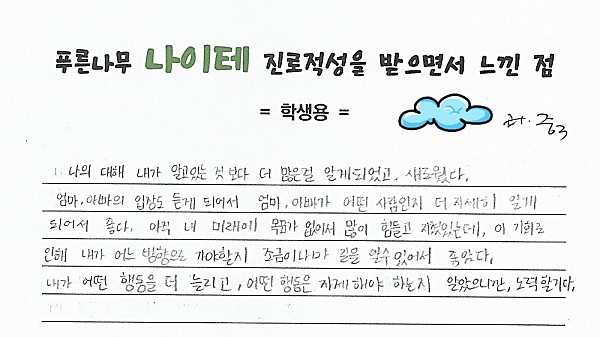 푸른나무 나이테 진로적성을 받으면서 느낀 점
= 학생용 =
중3
나의 대해 내가 알고있는 것 보다 더 많은걸 알게되었고, 새로웠다.
엄마, 아빠의 입장도 듣게 되어서 엄마, 아빠가 어떤 사람인지 더 자세히 알게
되어서 좋다. 아직 내 미래에 목표가 없어서 많이 힘들고 지쳤있는데, 이 기회로
인해 내가 어느 방향으로 가야할지 조금이나마 길을 알수 있어서 좋았다.
내가 어떤 행동을 더 늘리고, 어떤 행동은 자제해야 하는지 알았으니깐, 노력할거다.